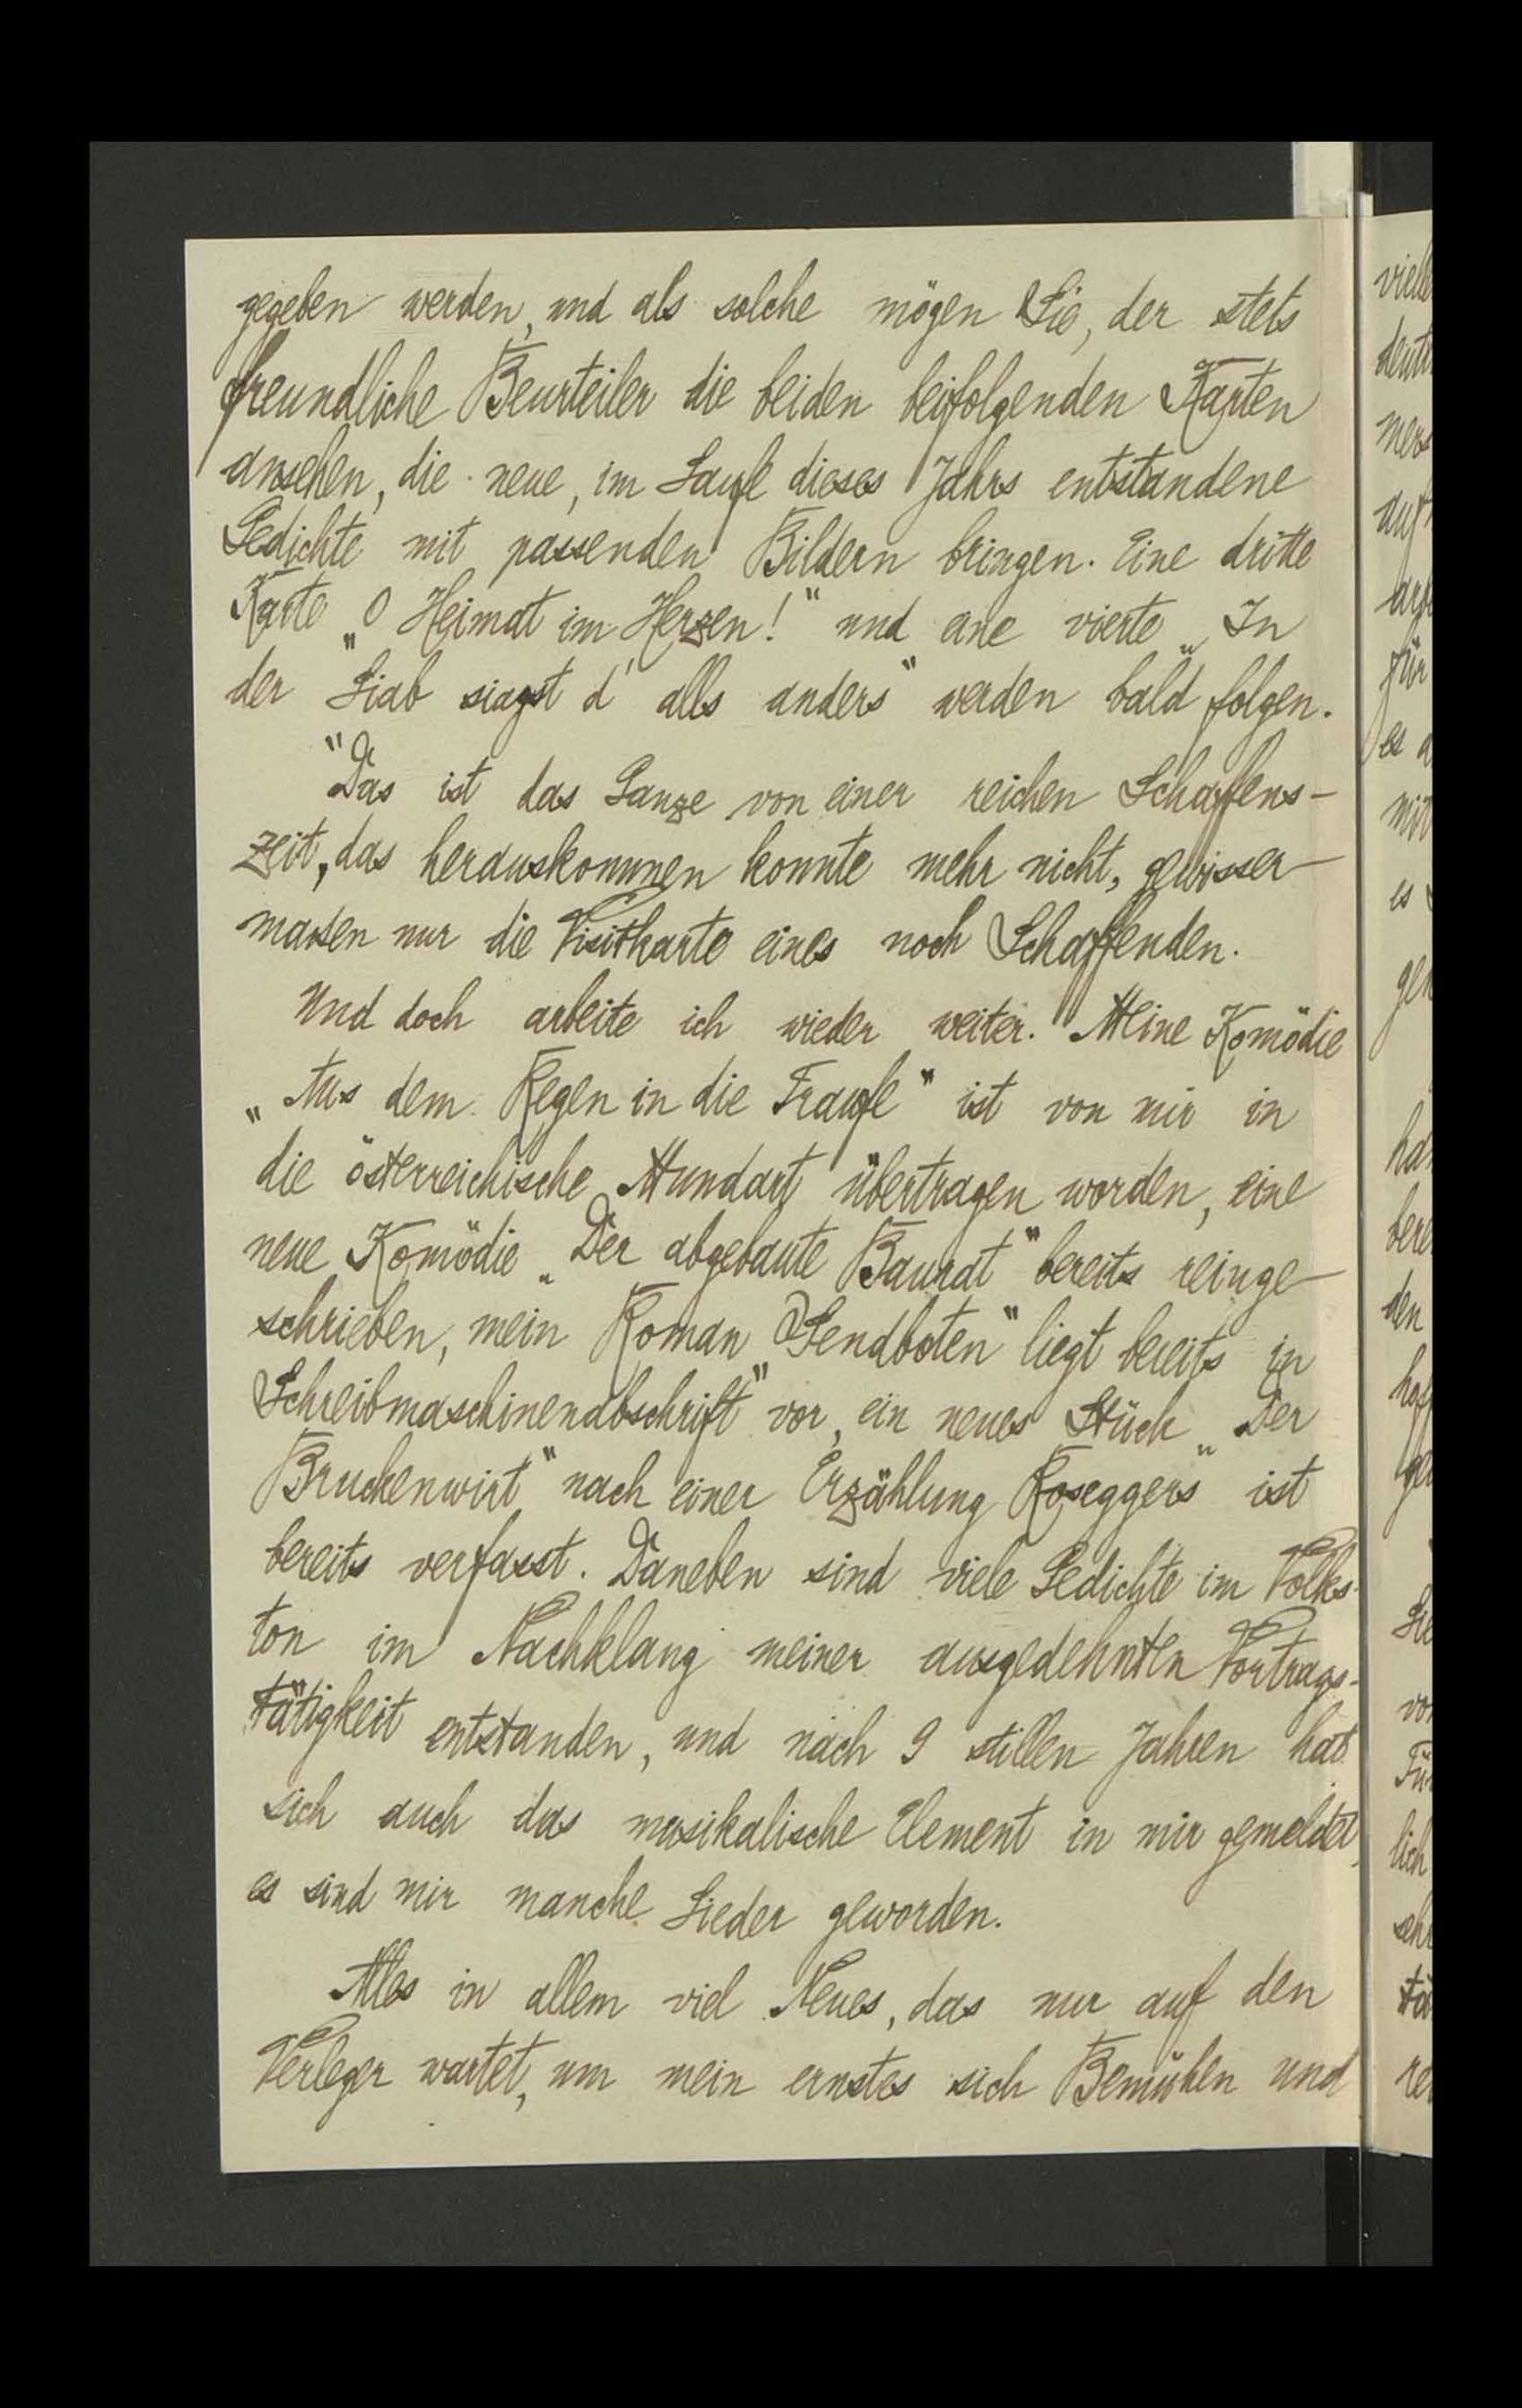 gegeben werden, und als solche mögen Sie, der stets
freundliche Beurteiler die beiden beifolgenden Karten
ansehen, die neue, im Laufe dieses Jahrs entstandene
Gedichte mit passenden Bildern bringen. Eine dritte
Karte „O Heimat im Herzen!“ und eine vierte „In
der Liab siagst d' alls anders“ werden bald folgen.
Das ist das Ganze von einer reichen Schaffens-
zeit, das herauskommen konnte mehr nicht, gewisser-
massen nur die Visitkarte eines noch Schaffenden.
Und doch arbeite ich wieder weiter. Meine Komödie
„Aus dem Regen in die Traufe“ ist von mir in
die österreichische Mundart übertragen worden, eine
neue Komödie „Der abgebaute Baurat“ bereits reinge-
schrieben, mein Roman „Sendboten“ liegt bereits in
Schreibmaschinenabschrift vor, ein neues Stück „Der
Bruckenwirt“ nach einer Erzählung Roseggers ist
bereits verfasst. Daneben sind viele Gedichte im Volks-
ton im Nachklang meiner ausgedehnten Vortrags-
tätigkeit entstanden, und nach 9 stillen Jahren hat
sich auch das musikalische Element in mir gemeldet,
es sind mir manche Lieder geworden.
Alles in allem viel Neues, das nur auf den
Verleger wartet, um mein ernstes sich Bemühen und